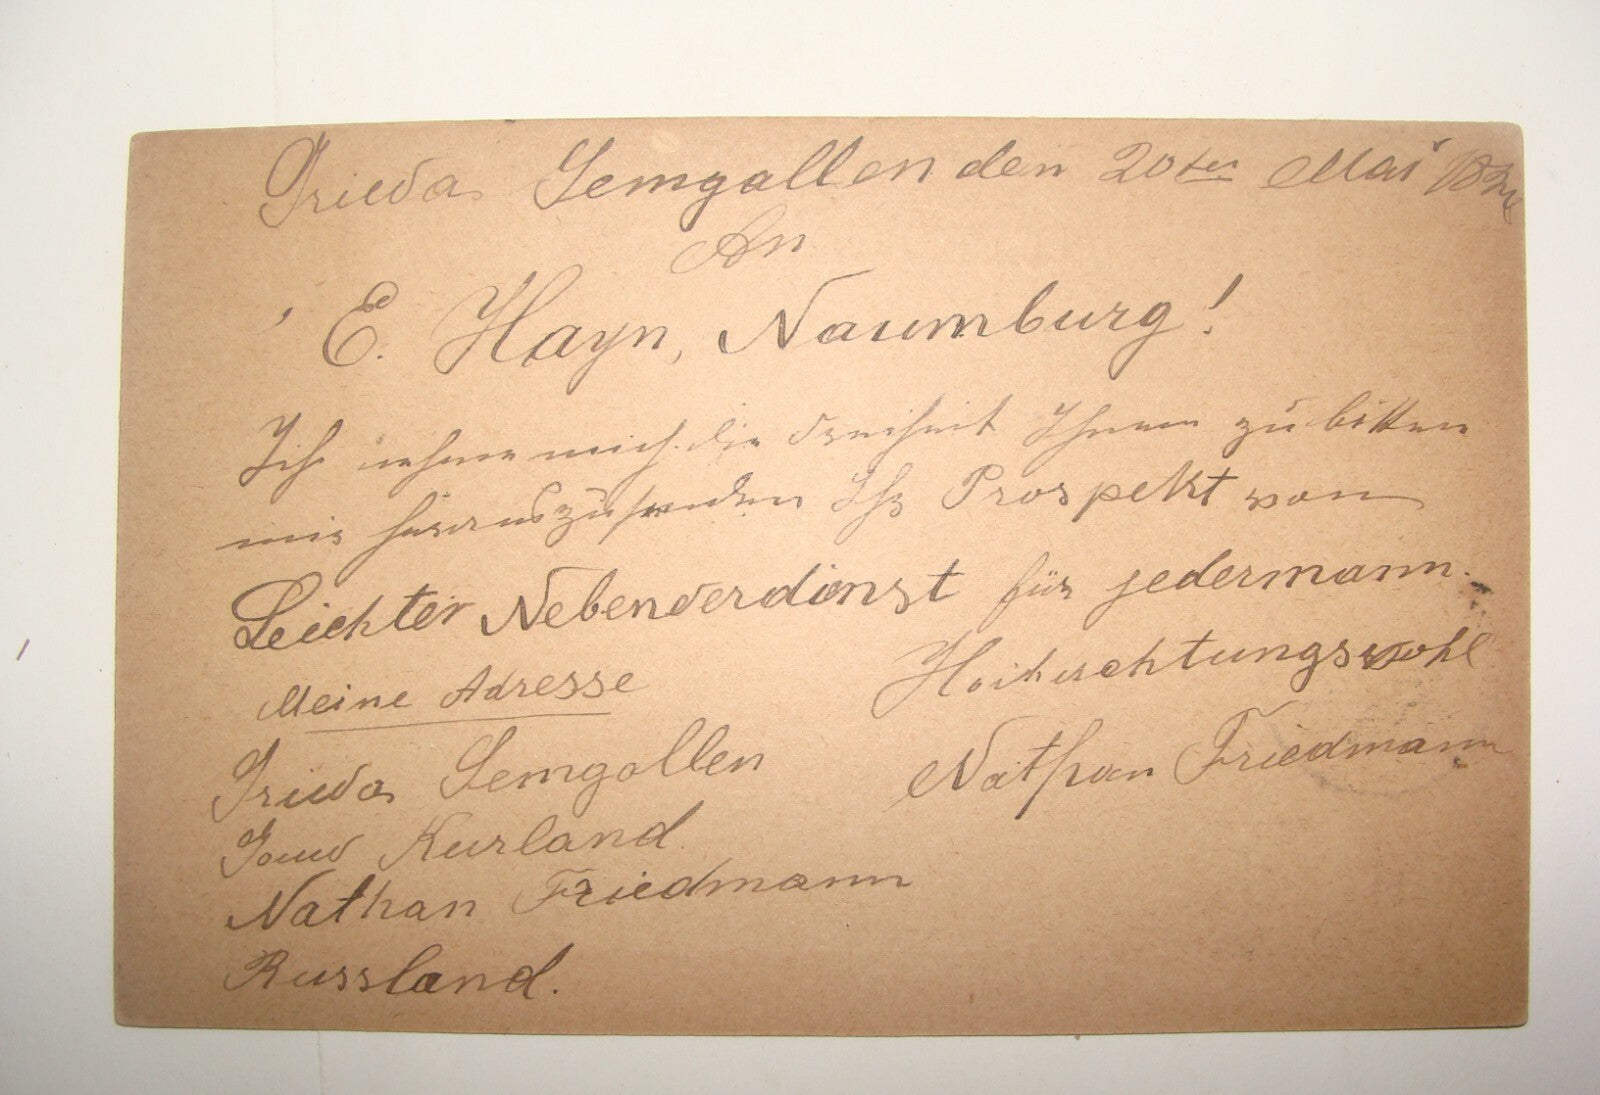 Griwa Semgallen den 20ter Mai
An
E. Hayn, Naumburg!
Ich nehme mich die Freiheit Ihnen zu bitten
mir herauszusenden Ihr Prospekt von
Leichter Nebenverdinst für jedermann.
Hochachtungswohl
Meine Adresse
Nathan Friedmann
Griwa Semgallen
Gouv Kurland
Nathan Friedmann
Russland.